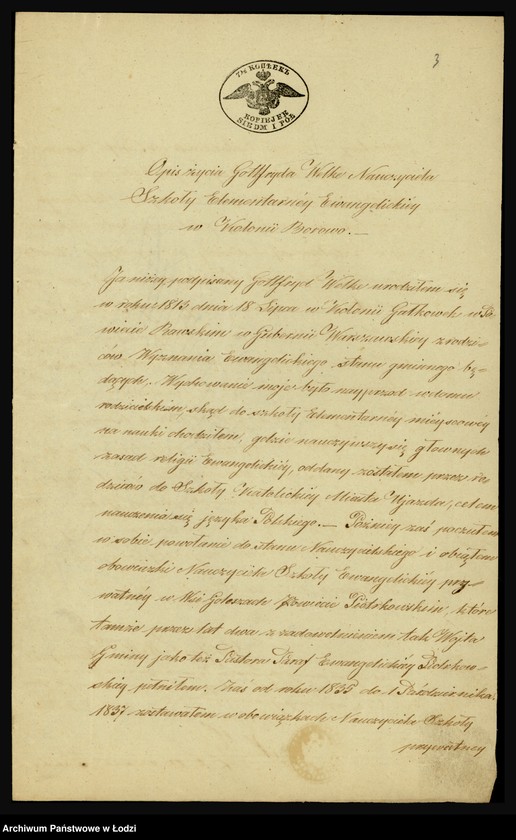 3
7½ KOPIEEKЪ
KOPIEJEK
SIEDM I PÓŁ
Opis życia Gottfryda Welke Nauczyciela
Szkoły Elementarnéy Ewangelickiéy
w Kolonii Borowo. —
Ja niżéy podpisany Gottfryd Welke urodziłem się
w roku 1815 dnia 18 Lipca w Kolonii Gałkowek w Po
wiecie Rawskim w Gubernii Warszawskiéy z rodzi-
ców Wyznania Ewangelickiego, stanu gminnego bę-
dących. Wychowanie moje było najprzod w domu
rodzicielskim, skąd do szkoły Elementarnéy mieyscowéy
na nauki chodziłem, gdzie nauczywszy się głownych
zasad religii Ewangelickiéy, oddany zostałem przez ro
dziców do Szkoły Katolickiéy Miasta Ujazda, celem
nauczenia się języka Polskiego. — Poźniéy zaś poczułem
w sobie powołanie do stanu Nauczycielskiego i objąłem
obowiązki Nauczyciela Szkoły Ewangelickiéy pry-
watnéy w Wsi Goleszach Powiecie Piotrkowskim, które
tamże przez lat dwa z zadowolnieniem tak Wójta
Gminy jako też Pastora Paraf Ewangelickiéy
pełniłem. Zaś od roku 1835 do 1 Października
1837 zostawałem w obowiązkach Nauczyciela Szkoły
prywatnéy
Archiwum Państwowe w Łodzi